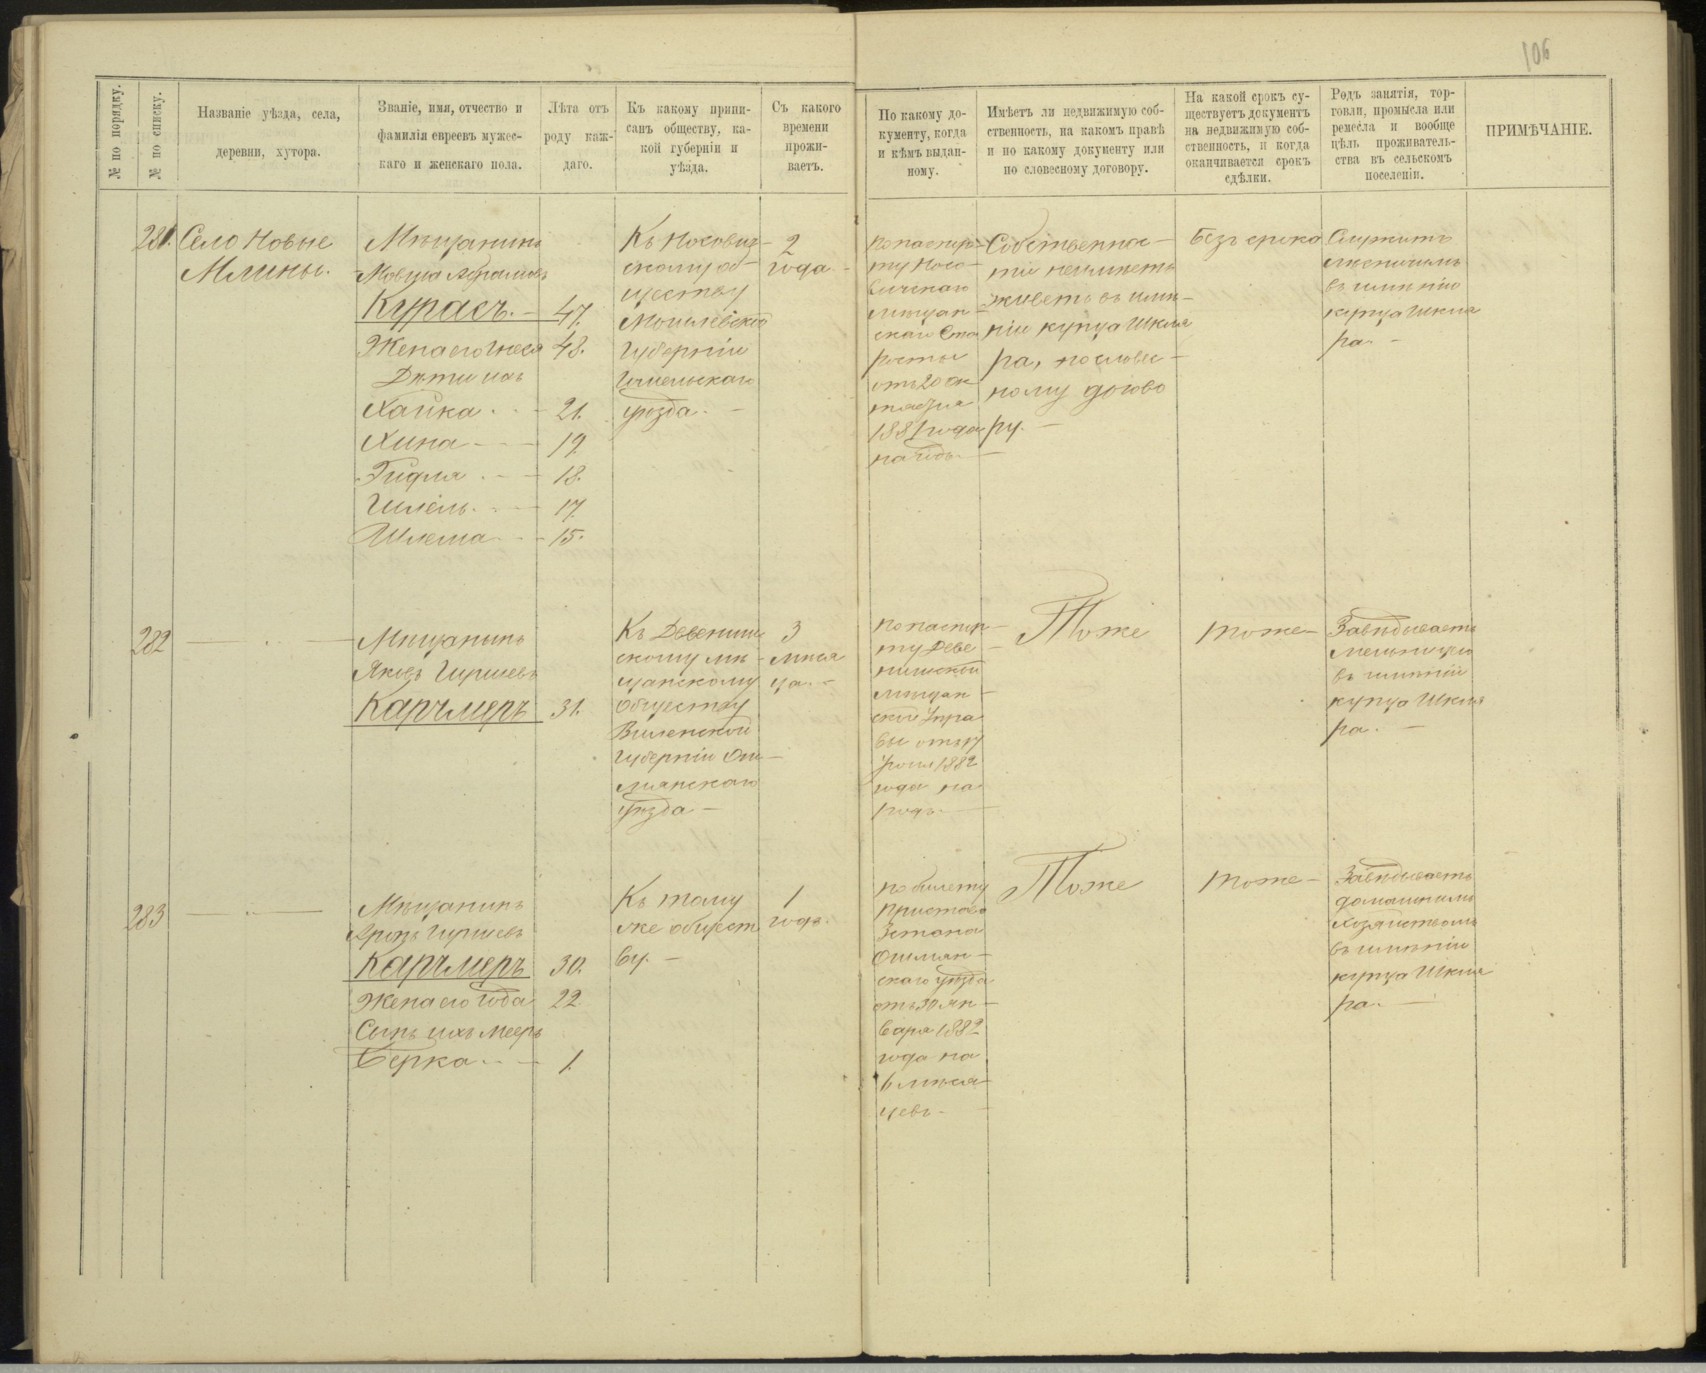 106
№ по порядку.
№ по списку.
Названіе уѣзда, села,
деревни, хутора.
Званіе, имя, отчество и
фамилія евреевъ мужес-
каго и женскаго пола.
Лѣта отъ
роду каж-
даго.
Къ какому припи-
санъ обществу, ка-
кой губерніи и
уѣзда.
Съ какого
времени
прожи-
ваетъ.
По какому до-
кументу, когда
и кѣмъ выдан-
ному.
Имѣетъ ли недвижимую соб-
ственность, на какомъ правѣ
и по какому документу или
по словесному договору.
На какой срокъ су-
ществуетъ документъ
на недвижимую соб-
ственность, и когда
оканчивается срокъ
сдѣлки.
Родъ занятія, тор-
говли, промысла или
ремесла и вообще
цѣль проживатель-
ства въ сельскомъ
поселеніи.
ПРИМѢЧАНІЕ.
281.
Село Новые
Млины.
Мѣщанинъ
Мовша Абрамовъ
Курасъ. 47.
Жена его 48.
Дѣти ихъ
Хайка 21.
Хина 19.
18.
Гилель 17.
Шлема 15.
Къ Носович-
скому об-
ществу
Могилевской
Губерніи
Гомельскаго
уѣзда.
2
года
По паспор-
ту Носо-
вичскаго
мѣщан-
скаго Ста
росты
отъ 20 ок
тября
1881 года
на годъ.
Собственнос-
ти неимѣетъ
живетъ въ имѣ-
ніи купца Шкля
ра, по словес-
ному догово
ру.
Безъ срока
Служитъ
лѣсничимъ
въ имѣніи
купца Шкля
ра.
282
Мѣщанинъ
Яковъ Гиршевъ
Карчмеръ 31.
Къ Девениш
скому мѣ-
щанскому
обществу
Виленской
Губерніи Ош-
мянскаго
уѣзда
3
мѣся
ца.
По паспор-
ту Деве
нишской
мѣщан-
ской Упра
вы отъ
1882
года на
годъ.
Тоже
тоже
Завѣдываетъ
мельницею
въ имѣніи
купца Шкля
ра.
283
Мѣщанинъ
Аронъ Гиршевъ
Карчмеръ 30.
Жена его Года 22
Сынъ ихъ Мееръ
Берка 1.
Къ тому
же общест
ву.
1
годъ.
По билету
Пристава
3 стана
Ошмян-
скаго уѣзда
отъ 30 ян-
варя 1882
года на
6 мѣся-
цевъ.
Тоже
тоже
Завѣдываетъ
домашнимъ
хозяйствомъ
въ имѣніи
купца Шкля
ра.